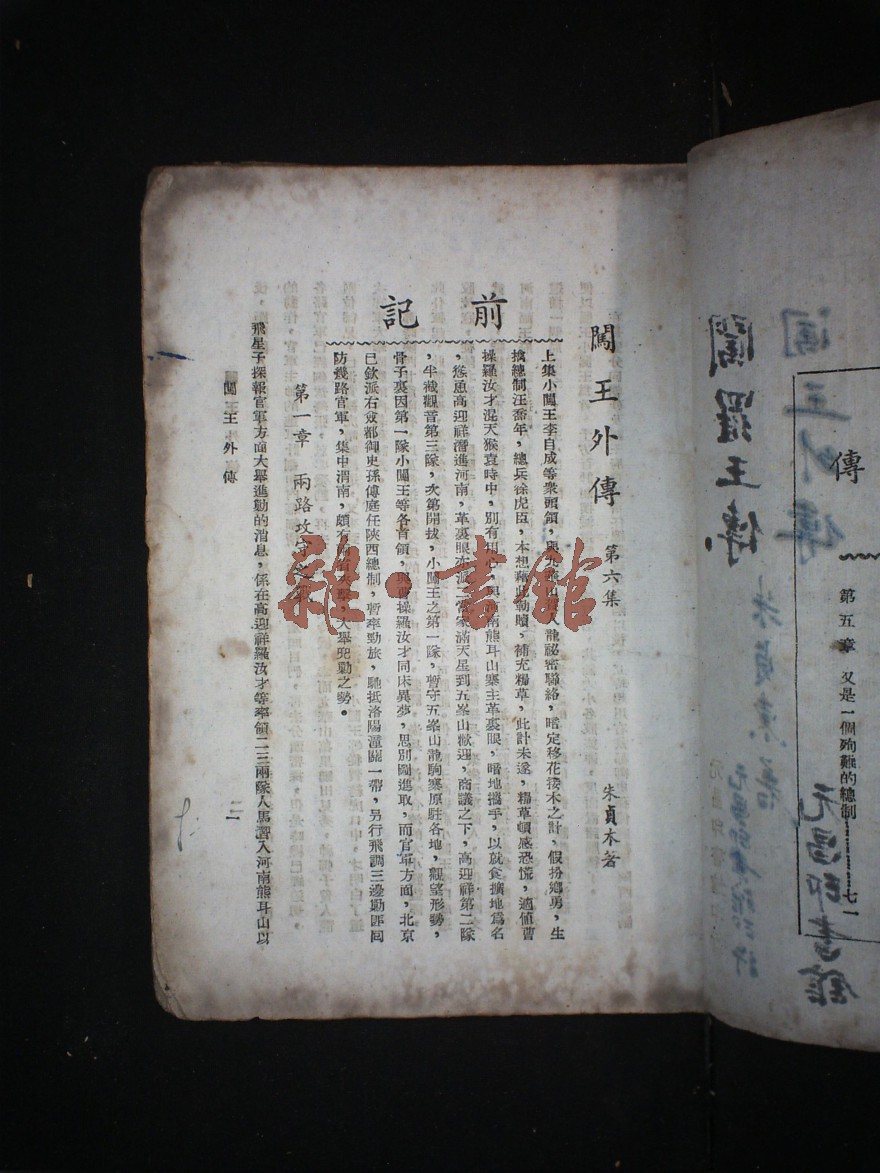 傳
第五章 又是一個殉難的總制………七一
元昌印書館
闖王外傳 第六集 朱貞木著
前記
上集小闖王李自成等衆頭領,與九
龍祕密聯絡,暗定移花接木之計,假扮鄉勇,生
擒總制汪喬年,總兵徐虎臣,本想藉此勒贖,補充糧草,此計未遂,糧草頓感恐慌,適值曹
操羅汝才混天猴袁時中,別有
南熊耳山寨主革裏眼,暗地攜手,以就食擴地爲名
,慫恿高迎祥潛進河南,革裏眼亦派二當家滿天星到五峯山歡迎,商議之下,高迎祥第二隊
,半截觀音第三隊,次第開拔,小闖王之第一隊,暫守五峯山龍駒寨原駐各地,觀望形勢,
骨子裏因第一隊小闖王等各首領,與曹操羅汝才同床異夢,思別圖進取,而官軍方面,北京
已欽派右僉都御史孫傳庭任陝西總制,暫率勁旅,馳抵洛陽潼關一帶,另行飛調三邊勦匪囘
防幾路官軍,集中渭南,頗有
大舉兜勦之勢。
第一章 兩路攻守之戰
飛星子探報官軍方面大舉進勦的消息,係在高迎祥羅汝才等率領二三兩隊人馬潛入河南熊耳山以
闖王外傳
雜·書館